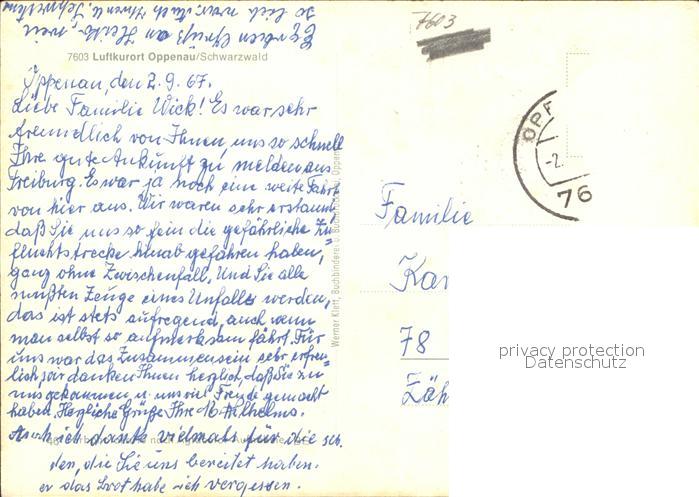 7603 Luftkurort Oppenau/Schwarzwald
Oppenau, den 2.9.67.
Liebe Familie Wick! Es war sehr
freundlich von Ihnen, uns so schnell
Ihre gute Ankunft zu melden aus
Freiburg. Es war ja noch eine weite Fahrt
von hier aus. Wir waren sehr erstaunt
daß Sie uns so fein die gefährliche Zu=
fluchtstrecke hinab gefahren haben,
ganz ohne Zwischenfall, Und Sie alle
mußten Zeuge eines Unfalls werden,
das ist stets aufregend, auch wenn
man selbst so aufmerksam fährt. Für
uns war das Zusammensein sehr erfreu=
lich, wir danken Ihnen herzlich, daß Sie zu
uns gekommen u. uns viel Freude gemacht
haben. Herzliche Grüße Ihre Wilhelms.
Auch ich danke vielmals für die
den, die Sie uns bereitet haben.
das habe ich vergessen.
7603
OPP
-2.
76
Familie
Kar
78
Zäh
Werner Kleif, Buchbinderei u.
privacy protection
Datenschutz